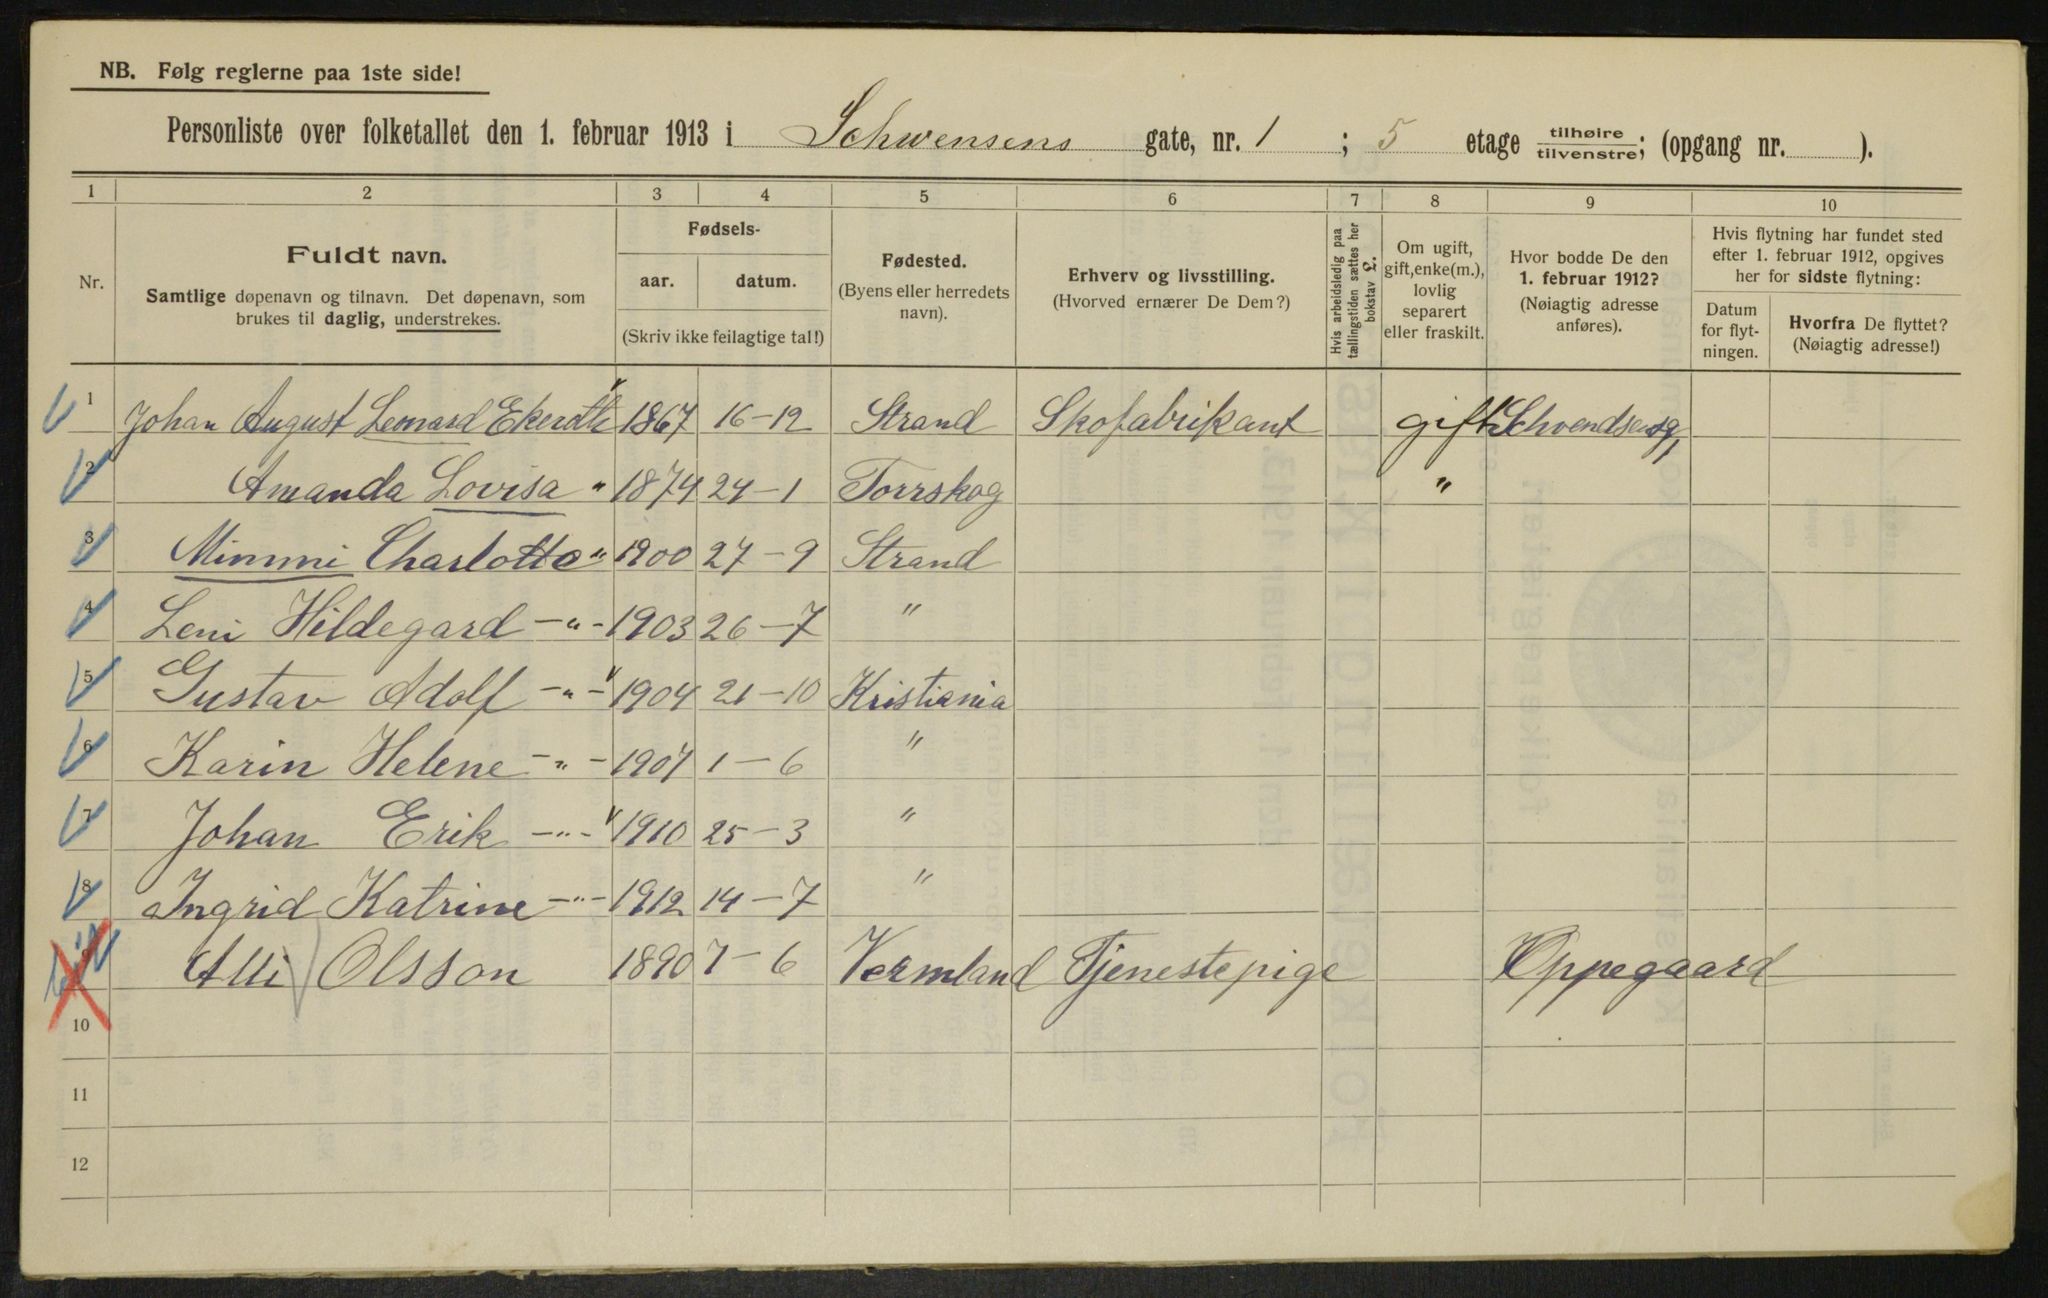 NB. Følg reglerne paa 1ste side!
Personliste over folketallet den 1. februar 1913 i Schwensens gate, nr. 1 ; 5 etage tilhøire/tilvenstre; (opgang nr. ).
1 2 3 4 5 6 7 8 9 10
Nr.
Fuldt navn.
Samtlige døpenavn og tilnavn. Det døpenavn, som
brukes til daglig, understrekes.
Fødsels-
aar. datum.
(Skriv ikke feilagtige tal!)
Fødested.
(Byens eller herredets
navn).
Erhverv og livsstilling.
(Hvorved ernærer De Dem?)
Hvis arbeidsledig paa
tællingstiden sættes her
bokstav £.
Om ugift,
gift, enke(m.),
lovlig
separert
eller fraskilt.
Hvor bodde De den
1. februar 1912?
(Nøiagtig adresse
anføres).
Hvis flytning har fundet sted
efter 1. februar 1912, opgives
her for sidste flytning:
Datum
for flyt-
ningen.
Hvorfra De flyttet?
(Nøiagtig adresse!)
1 Johan August Lennard Ekeroth 1867 16-12 Strand Skofabrikant gift Schvendsensg,
2 Amanda Lovisa " 1874 24-1 Torrskog "
3 Mimmi Charlotte " 1900 27-9 Strand
4 Leni Hildegard -"- 1903 26-7 "
5 Gustav Adolf -"- 1904 21-10 Kristiania
6 Karin Helene -"- 1907 1-6 "
7 Johan Erik -"- 1910 25-3 "
8 Ingrid Katrine -"- 1912 14-7 "
9 Alli Olsson 1890 7-6 Vermland Tjenestepige Oppegaard
10
11
12